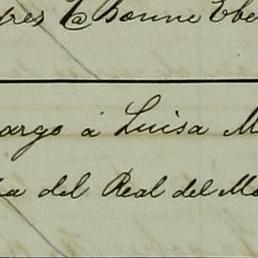 dres & Bonne Ebe
argo á Luisa M
a del Real del Mo